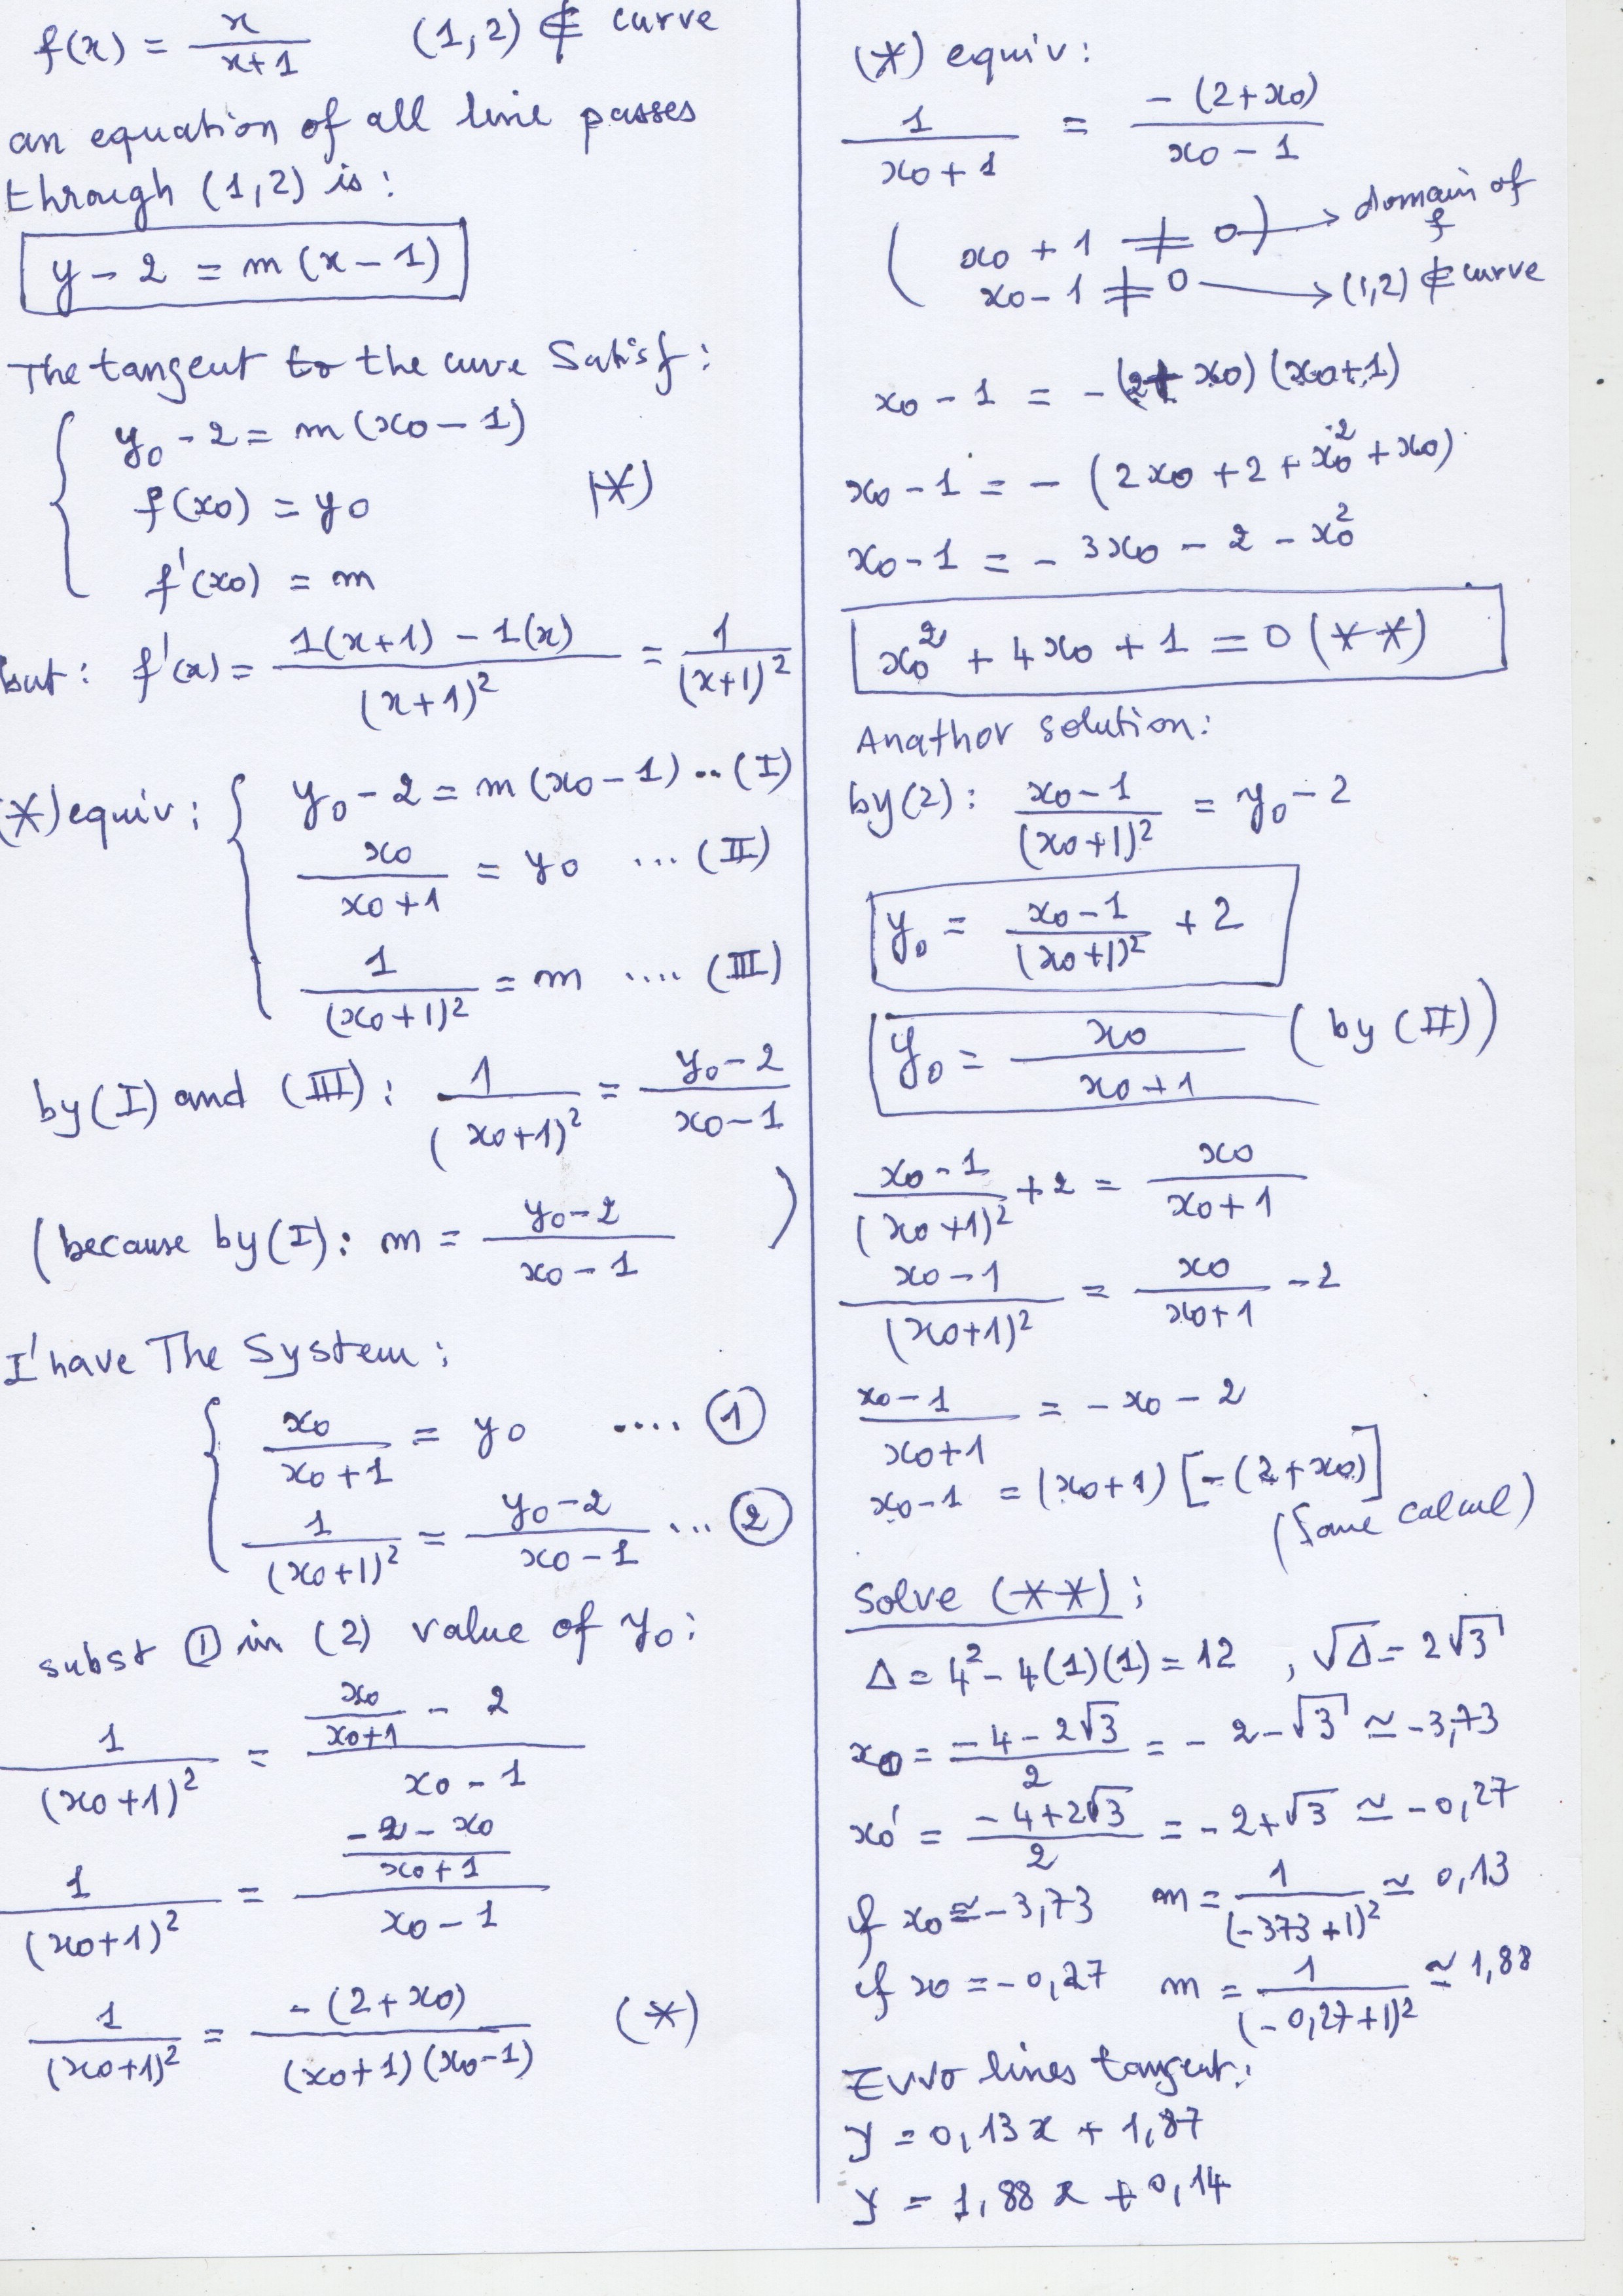 f(x) = x/(x+1)    (1,2) ∉ curve
an equation of all line passes
through (1,2) is:
y - 2 = m(x - 1)
The tangent to the curve Satisf:
{ y₀ - 2 = m(x₀ - 1)
f(x₀) = y₀    (*)
f'(x₀) = m
but: f'(x) = (1(x+1) - 1(x))/(x+1)² = 1/(x+1)²
(*) equiv: { y₀ - 2 = m(x₀ - 1) .. (I)
x₀/(x₀+1) = y₀ ... (II)
1/(x₀+1)² = m .... (III)
by (I) and (III): 1/(x₀+1)² = (y₀-2)/(x₀-1)
(because by (I): m = (y₀-2)/(x₀-1))
I'have The System:
{ x₀/(x₀+1) = y₀ .... ①
1/(x₀+1)² = (y₀-2)/(x₀-1) ... ②
subst ① in (2) value of y₀:
1/(x₀+1)² = (x₀/(x₀+1) - 2)/(x₀-1)
1/(x₀+1)² = ((-2-x₀)/(x₀+1))/(x₀-1)
1/(x₀+1)² = -(2+x₀)/((x₀+1)(x₀-1))    (*)
(*) equiv:
1/(x₀+1) = -(2+x₀)/(x₀-1)
( x₀+1 ≠ 0) → domain of f
x₀-1 ≠ 0 → (1,2) ∉ curve
x₀ - 1 = -(2+x₀)(x₀+1)
x₀ - 1 = -(2x₀ + 2 + x₀² + x₀)
x₀ - 1 = - 3x₀ - 2 - x₀²
x₀² + 4x₀ + 1 = 0 (**)
Anathor solution:
by (2): (x₀-1)/(x₀+1)² = y₀ - 2
y₀ = (x₀-1)/(x₀+1)² + 2
y₀ = x₀/(x₀+1) (by (II))
(x₀-1)/(x₀+1)² + 2 = x₀/(x₀+1)
(x₀-1)/(x₀+1)² = x₀/(x₀+1) - 2
(x₀-1)/(x₀+1) = -x₀ - 2
x₀-1 = (x₀+1)[-(2+x₀)]
(Same calcul)
Solve (**):
Δ = 4² - 4(1)(1) = 12 , √Δ = 2√3
x₀ = (-4-2√3)/2 = - 2-√3 ≃ -3,73
x₀' = (-4+2√3)/2 = -2+√3 ≃ -0,27
if x₀ ≃ -3,73 m = 1/(-373+1)² ≃ 0,13
if x₀ = -0,27 m = 1/(-0,27+1)² ≃ 1,88
lines tangent:
y = 0,13x + 1,87
y = 1,88x + 0,14